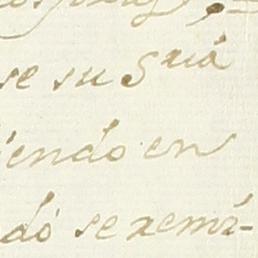 se su Sria
iendo en
dó se remi-